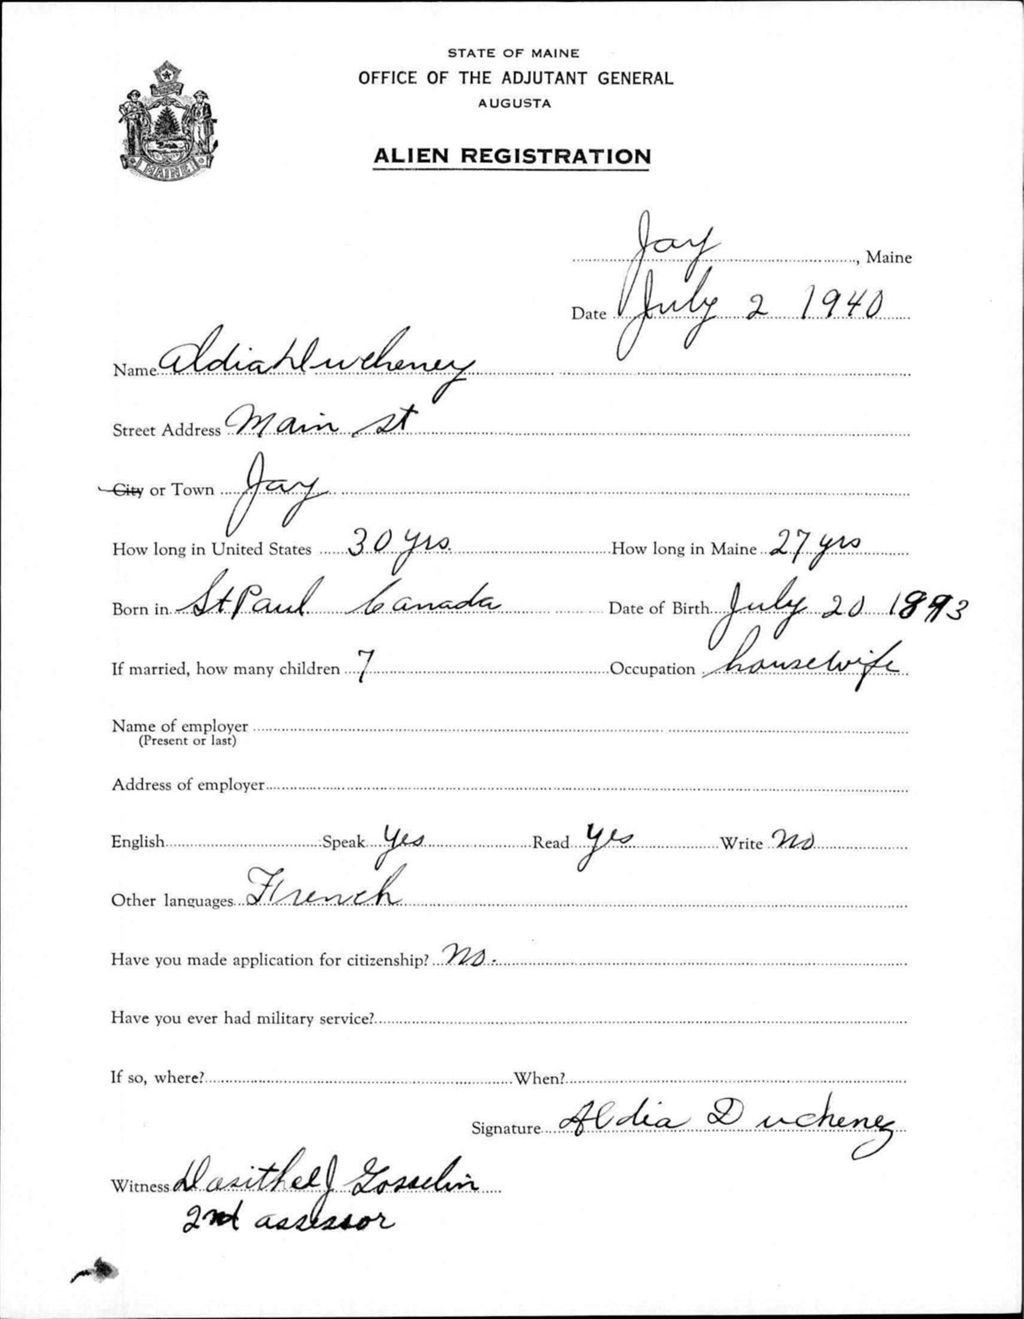 STATE OF MAINE
OFFICE OF THE ADJUTANT GENERAL
AUGUSTA
ALIEN REGISTRATION
MAINE
Jay, Maine
Date July 2 1940
Name Aldia Ducheney
Street Address Main St
City or Town Jay
How long in United States 30 yrs. How long in Maine 27 yrs
Born in St Paul Canada Date of Birth July 20 1893
If married, how many children 7 Occupation housewife
Name of employer
(Present or last)
Address of employer
English Speak Yes Read Yes Write No
Other languages French
Have you made application for citizenship? No.
Have you ever had military service?
If so, where? When?
Signature Aldia Ducheney
Witness J Gosselin
2nd assessor